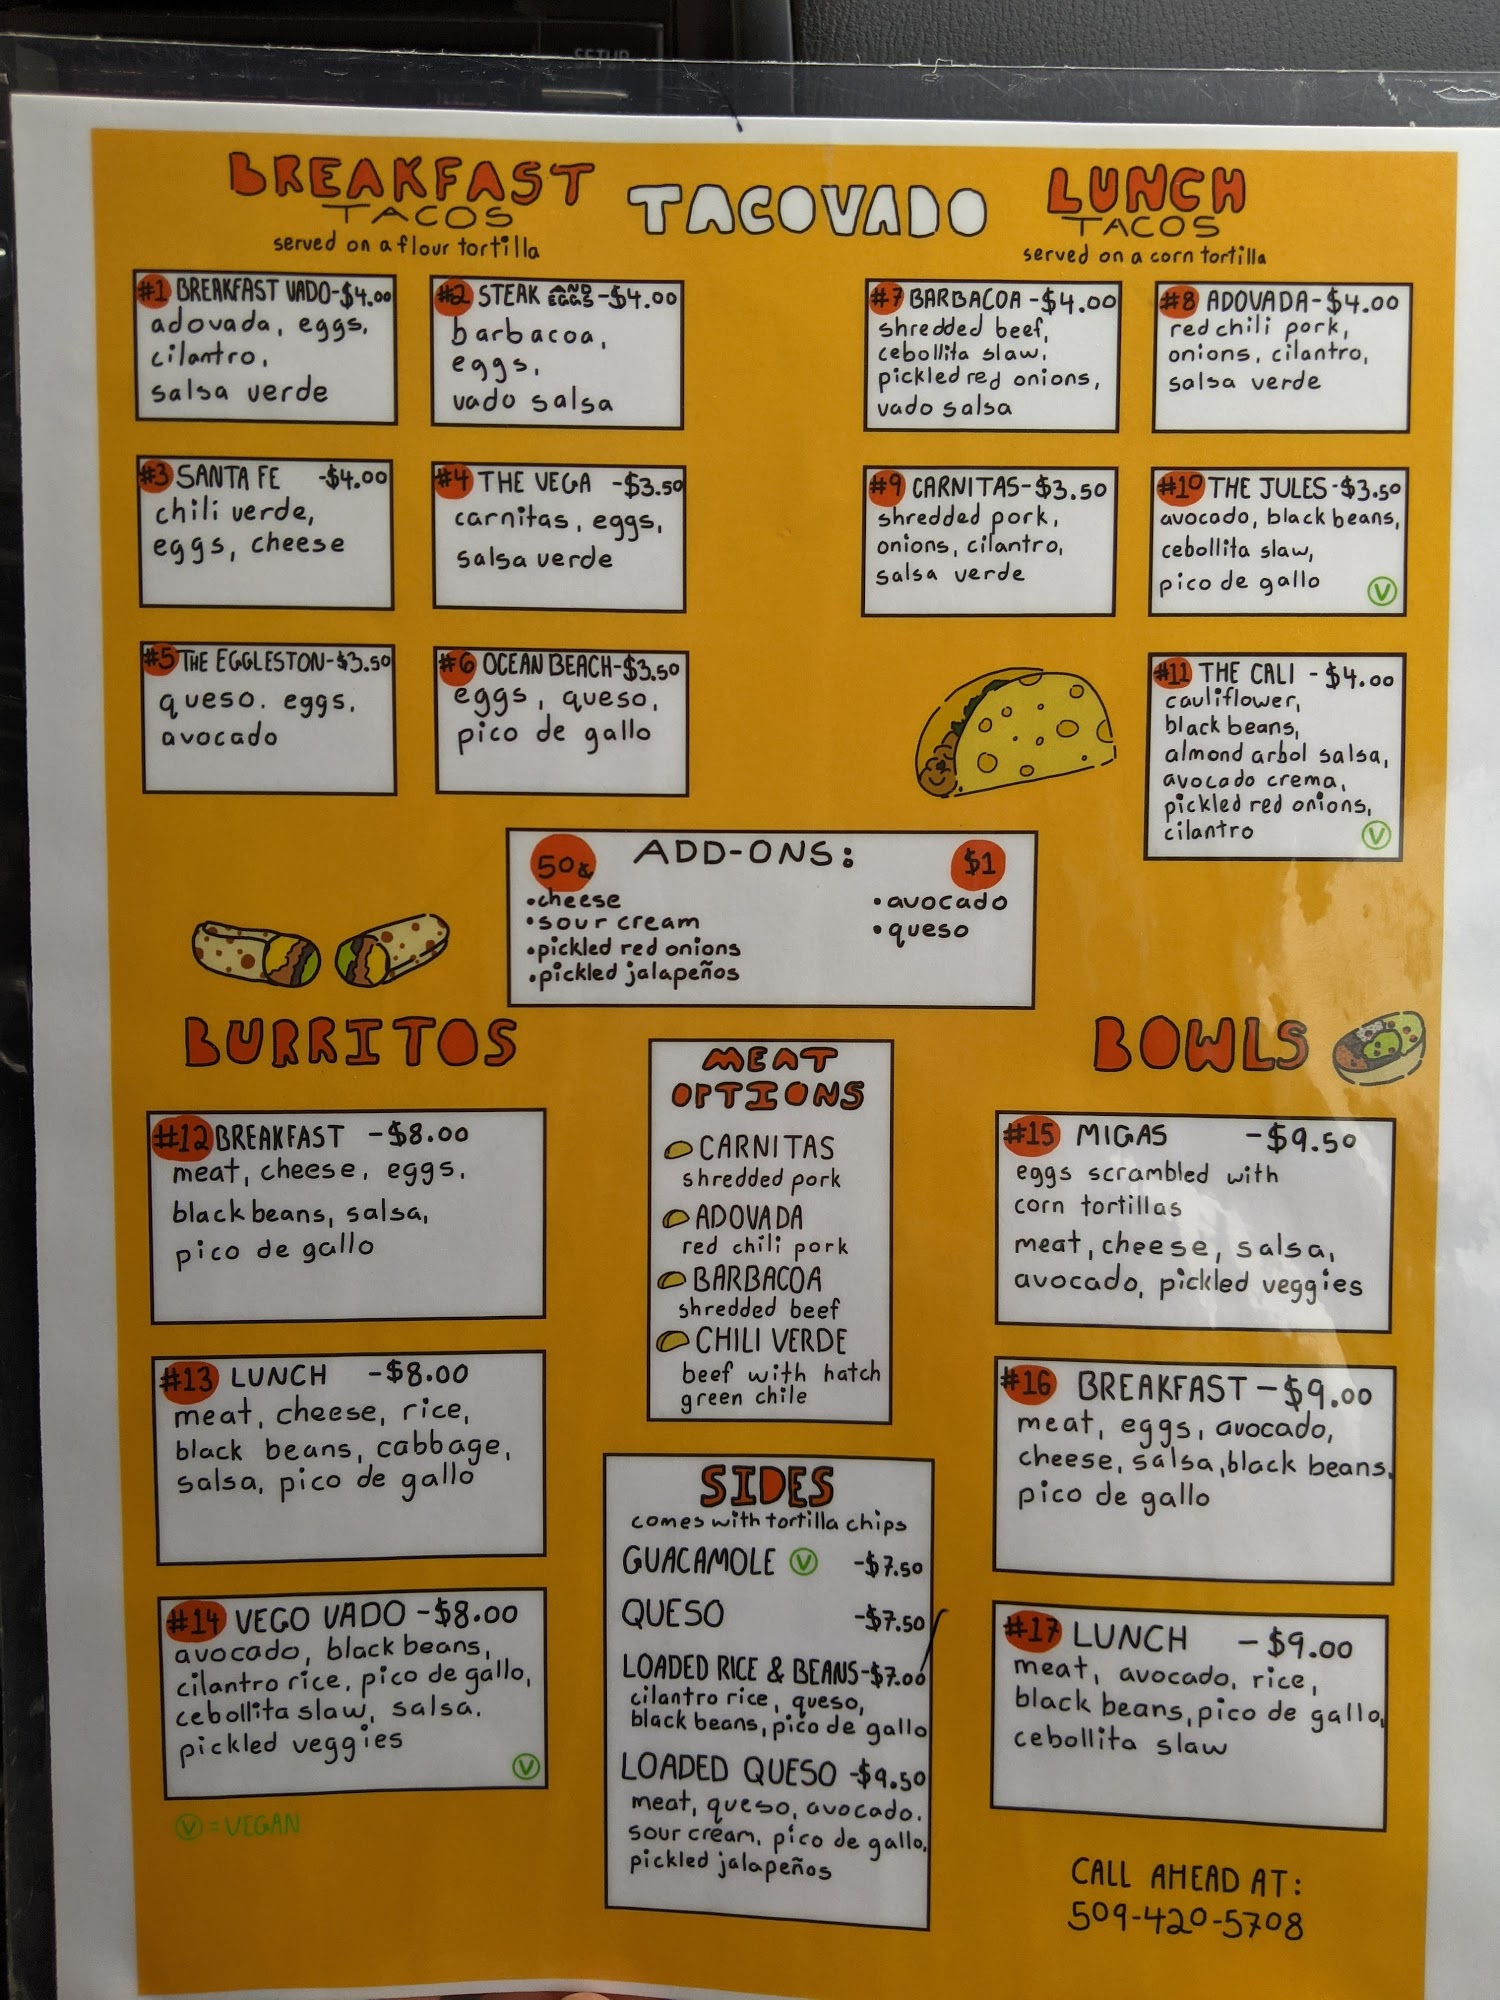 SETUP
BREAKFAST
TACOS
served on a flour tortilla
TACOVADO
LUNCH
TACOS
served on a corn tortilla
#1 BREAKFAST VADO-$4.00
adovada, eggs,
cilantro,
salsa verde
#2 STEAK AND EGGS -$4.00
barbacoa,
eggs,
vado salsa
#7 BARBACOA -$4.00
shredded beef,
cebollita slaw,
pickled red onions,
vado salsa
#8 ADOVADA-$4.00
red chili pork,
onions, cilantro,
salsa verde
#3 SANTA FE -$4.00
chili verde,
eggs, cheese
#4 THE VEGA -$3.50
carnitas, eggs,
salsa verde
#9 CARNITAS-$3.50
shredded pork,
onions, cilantro,
salsa verde
#10 THE JULES-$3.50
avocado, black beans,
cebollita slaw,
pico de gallo
V
#5 THE EGGLESTON-$3.50
queso. eggs,
avocado
#6 OCEAN BEACH-$3.50
eggs, queso,
pico de gallo
#11 THE CALI -$4.00
cauliflower,
black beans,
almond arbol salsa,
avocado crema,
pickled red onions,
cilantro
V
ADD-ONS:
50¢
•cheese
•sour cream
•pickled red onions
•pickled jalapeños
$1
•avocado
•queso
BURRITOS
#12 BREAKFAST -$8.00
meat, cheese, eggs,
black beans, salsa,
pico de gallo
#13 LUNCH -$8.00
meat, cheese, rice,
black beans, cabbage,
salsa, pico de gallo
#14 VEGO VADO -$8.00
avocado, black beans,
cilantro rice, pico de gallo,
cebollita slaw, salsa.
pickled veggies
V
V = VEGAN
MEAT
OPTIONS
CARNITAS
shredded pork
ADOVADA
red chili pork
BARBACOA
shredded beef
CHILI VERDE
beef with hatch
green chile
SIDES
comes with tortilla chips
GUACAMOLE V -$7.50
QUESO -$7.50
LOADED RICE & BEANS-$7.00
cilantro rice, queso,
black beans, pico de gallo
LOADED QUESO -$9.50
meat, queso, avocado.
sour cream, pico de gallo,
pickled jalapeños
BOWLS
#15 MIGAS -$9.50
eggs scrambled with
corn tortillas
meat, cheese, salsa,
avocado, pickled veggies
#16 BREAKFAST -$9.00
meat, eggs, avocado,
cheese, salsa, black beans,
pico de gallo
#17 LUNCH -$9.00
meat, avocado, rice,
black beans, pico de gallo,
cebollita slaw
CALL AHEAD AT:
509-420-5708